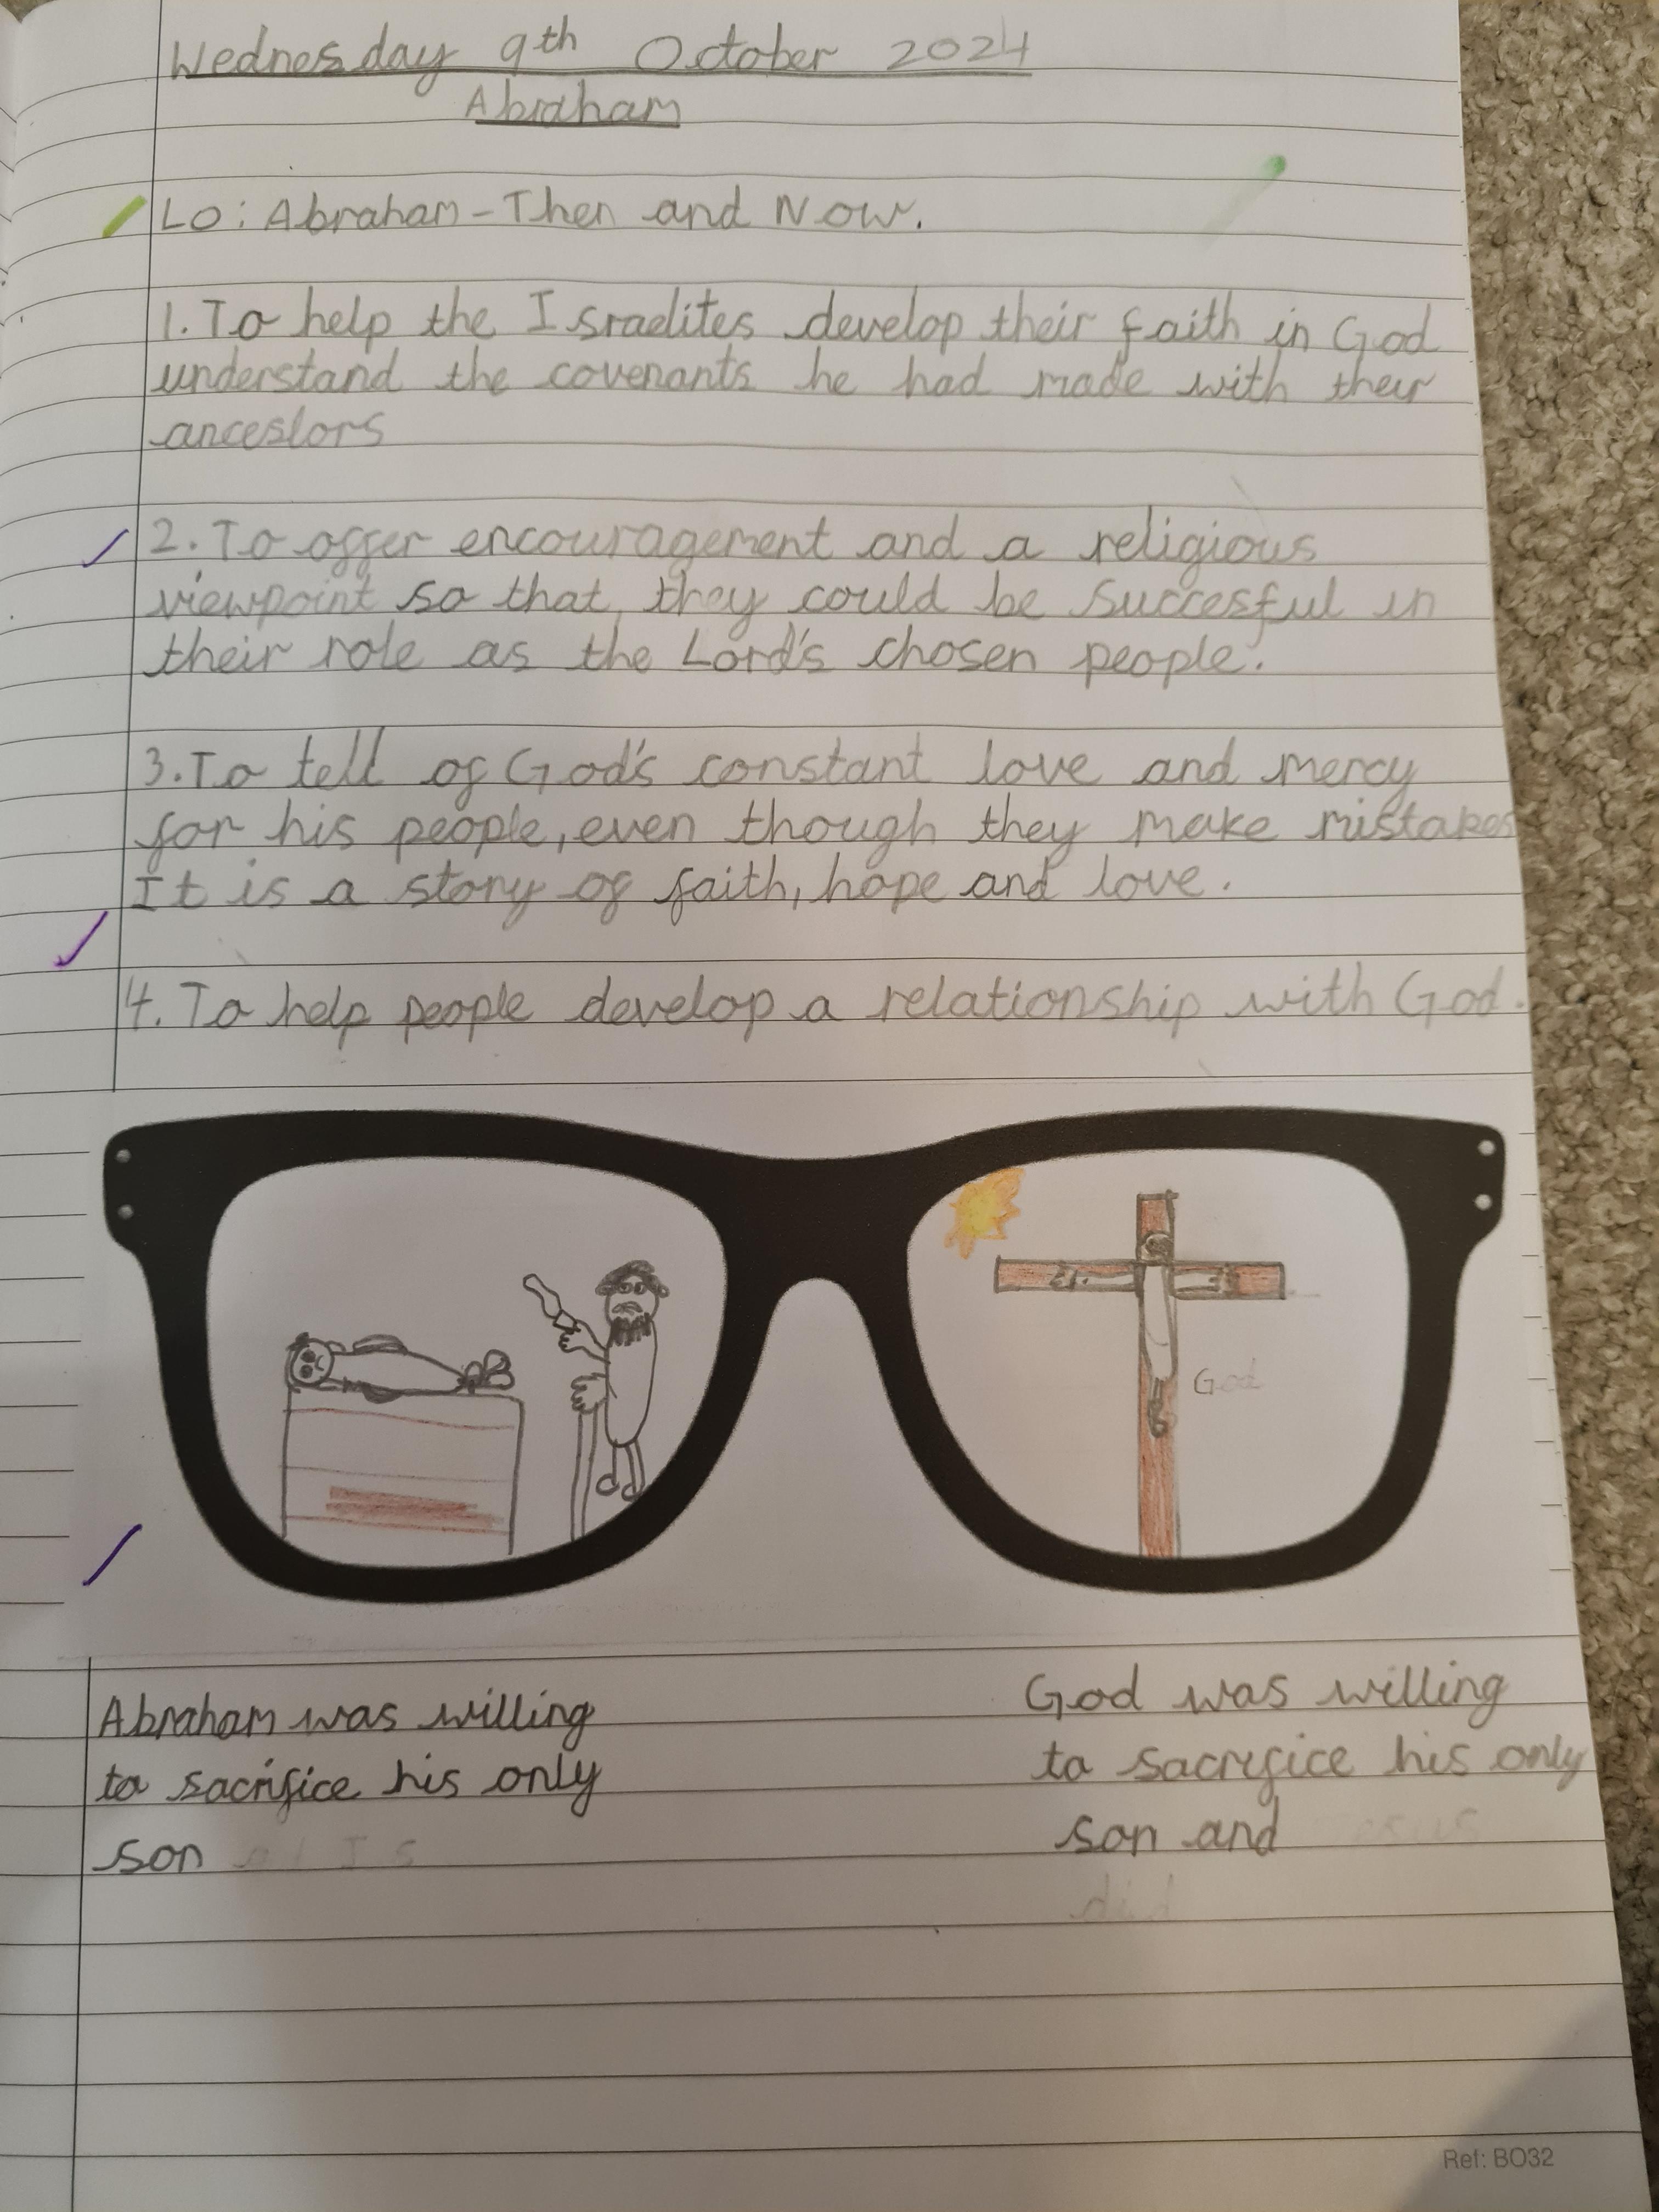 Wednesday 9th October 2024
Abraham
LO: Abraham - Then and Now.
1. To help the Israelites develop their faith in God
understand the covenants he had made with their
ancestors
2. To offer encouragement and a religious
viewpoint so that, they could be succesful in
their role as the Lord's chosen people.
3. To tell of God's constant love and mercy
for his people, even though they make mistakes
It is a story of faith, hope and love.
4. To help people develop a relationship with God.
God
Abraham was willing
to sacrifice his only
son
God was willing
to sacrifice his only
son and
did
Ref: BO32